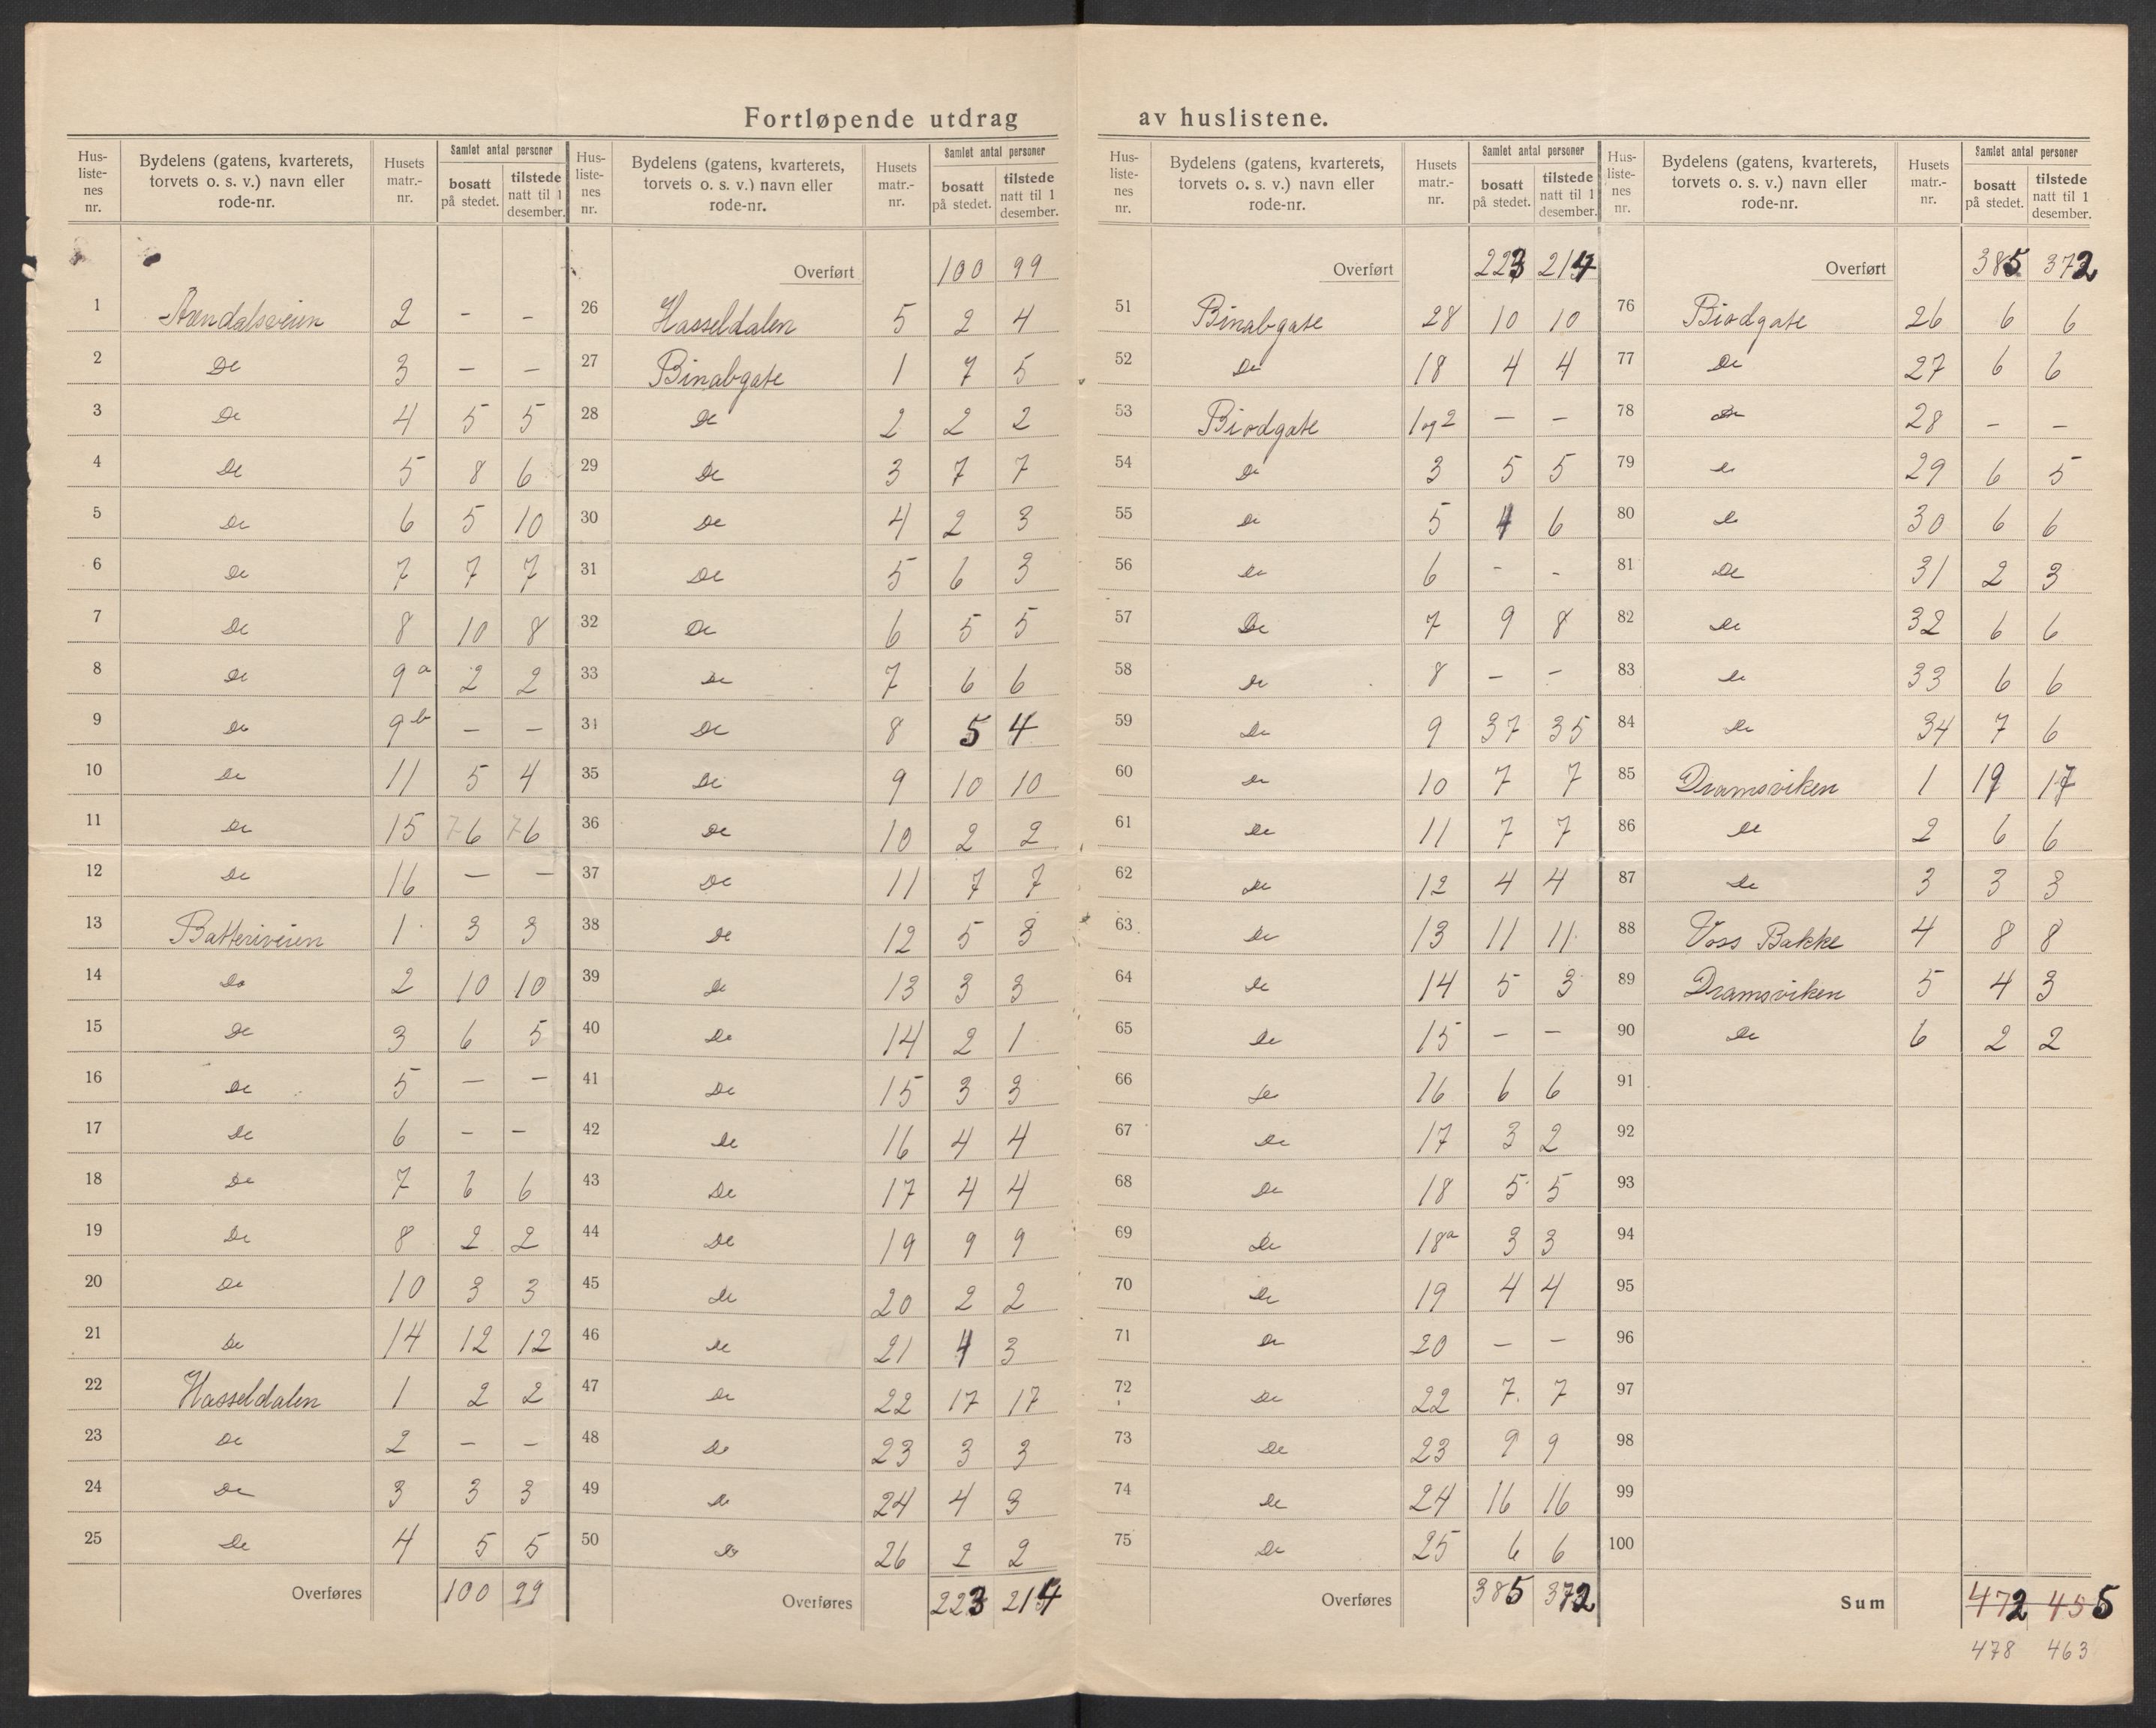 Fortløpende utdrag av huslistene.
Hus-listenes nr. | Bydelens (gatens, kvarterets, torvets o. s. v.) navn eller rode-nr. | Husets matr.-nr. | Samlet antal personer bosatt på stedet. | tilstede natt til 1 desember.
1 Arendalsveien 2 - -
2 Do 3 - -
3 Do 4 5 5
4 Do 5 8 6
5 Do 6 5 10
6 Do 7 7 7
7 Do 8 10 8
8 Do 9a 2 2
9 Do 9b - -
10 Do 11 5 4
11 Do 15 76 76
12 Do 16 - -
13 Batteriveien 1 3 3
14 Do 2 10 10
15 Do 3 6 5
16 Do 5 - -
17 Do 6 - -
18 Do 7 6 6
19 Do 8 2 2
20 Do 10 3 3
21 Do 14 12 12
22 Hasseldalen 1 2 2
23 Do 2 - -
24 Do 3 3 3
25 Do 4 5 5
Overføres 100 99
Hus-listenes nr. | Bydelens (gatens, kvarterets, torvets o. s. v.) navn eller rode-nr. | Husets matr.-nr. | Samlet antal personer bosatt på stedet. | tilstede natt til 1 desember.
Overført 100 99
26 Hasseldalen 5 2 4
27 Binabgate 1 7 5
28 Do 2 2 2
29 Do 3 7 7
30 Do 4 2 3
31 Do 5 6 3
32 Do 6 5 5
33 Do 7 6 6
34 Do 8 5 4
35 Do 9 10 10
36 Do 10 2 2
37 Do 11 7 7
38 Do 12 5 3
39 Do 13 3 3
40 Do 14 2 1
41 Do 15 3 3
42 Do 16 4 4
43 Do 17 4 4
44 Do 19 9 9
45 Do 20 2 2
46 Do 21 4 3
47 Do 22 17 17
48 Do 23 3 3
49 Do 24 4 3
50 Do 26 2 2
Overføres 223 214
Hus-listenes nr. | Bydelens (gatens, kvarterets, torvets o. s. v.) navn eller rode-nr. | Husets matr.-nr. | Samlet antal personer bosatt på stedet. | tilstede natt til 1 desember.
Overført 223 214
51 Binabgate 28 10 10
52 Do 18 4 4
53 Biodgate 1 og 2 - -
54 Do 3 5 5
55 Do 5 4 6
56 Do 6 - -
57 Do 7 9 8
58 Do 8 - -
59 Do 9 37 35
60 Do 10 7 7
61 Do 11 7 7
62 Do 12 4 4
63 Do 13 11 11
64 Do 14 5 3
65 Do 15 - -
66 Do 16 6 6
67 Do 17 3 2
68 Do 18 5 5
69 Do 18a 3 3
70 Do 19 4 4
71 Do 20 - -
72 Do 22 7 7
73 Do 23 9 9
74 Do 24 16 16
75 Do 25 6 6
Overføres 385 372
Hus-listenes nr. | Bydelens (gatens, kvarterets, torvets o. s. v.) navn eller rode-nr. | Husets matr.-nr. | Samlet antal personer bosatt på stedet. | tilstede natt til 1 desember.
Overført 385 372
76 Biodgate 26 6 6
77 Do 27 6 6
78 Do 28 - -
79 Do 29 6 5
80 Do 30 6 6
81 Do 31 2 3
82 Do 32 6 6
83 Do 33 6 6
84 Do 34 7 6
85 Dramsviken 1 19 17
86 Do 2 6 6
87 Do 3 3 3
88 Voss Bakke 4 8 8
89 Dramsviken 5 4 3
90 Do 6 2 2
91
92
93
94
95
96
97
98
99
100
Sum 472 455
478 463